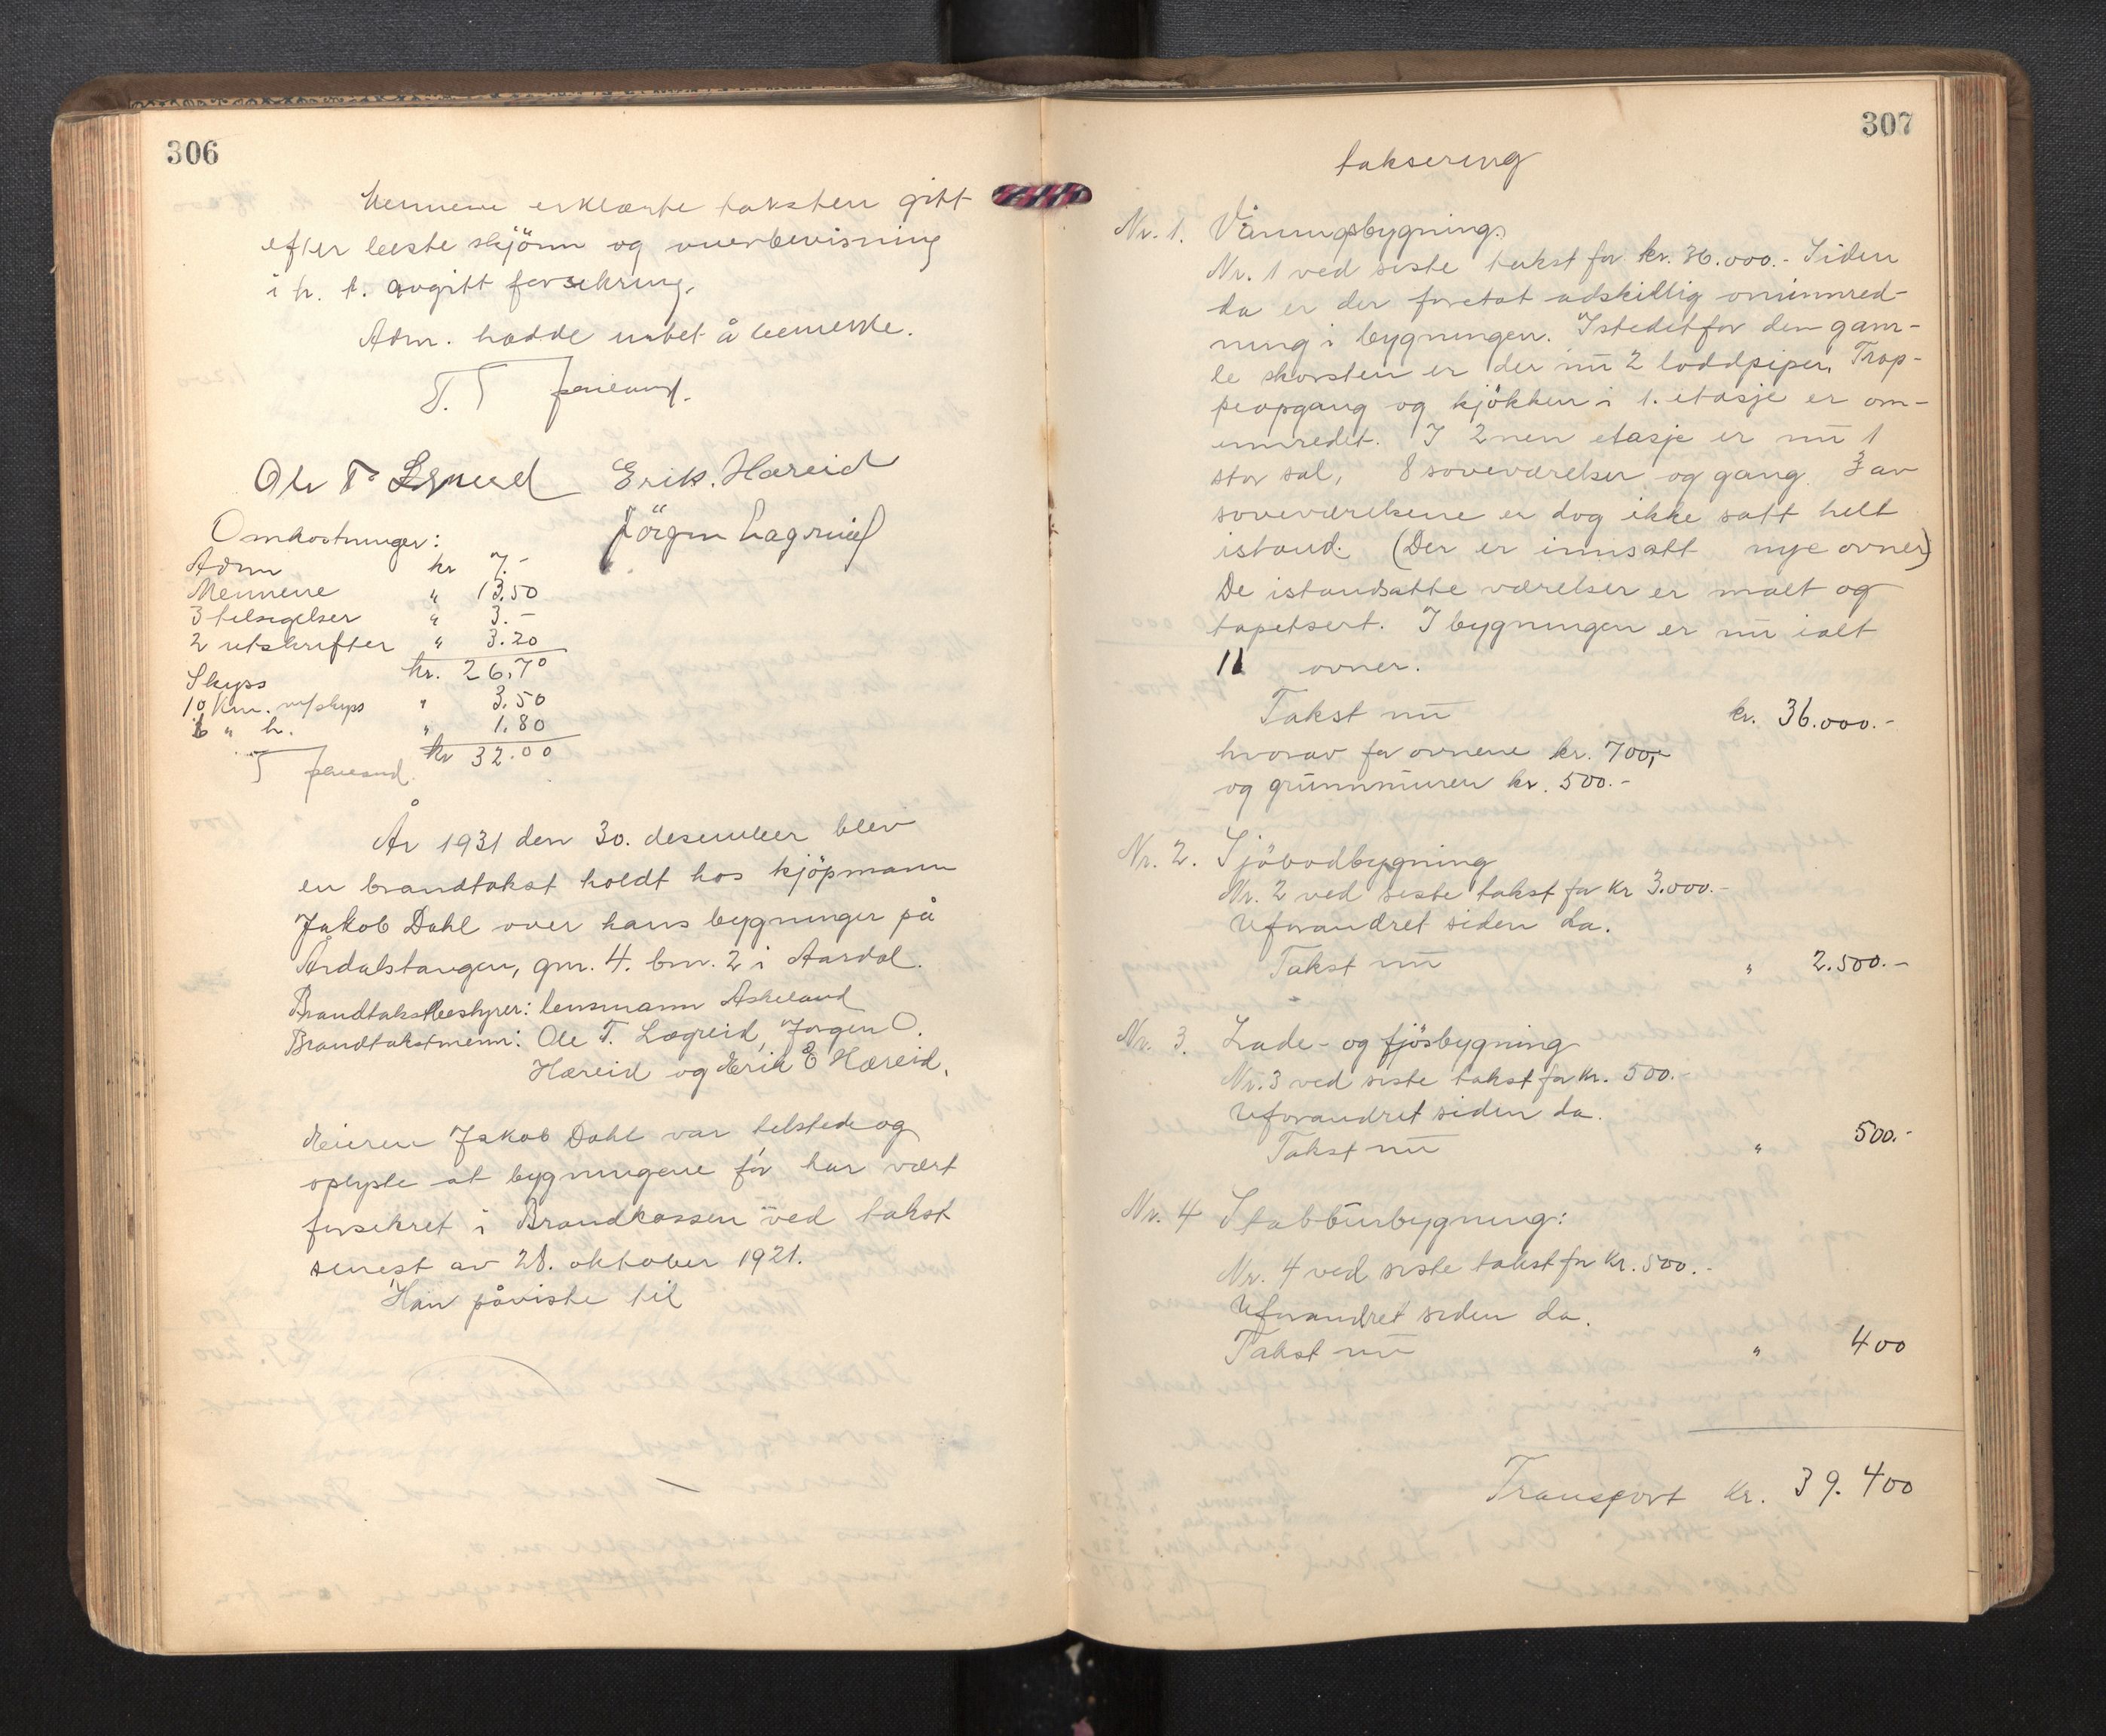 306
Mennene erklærte taksten gitt
efter beste skjönn og overbevisning
i h. t. avgitt forsikring.
Adm. hadde intet å bemerke.
T. T
Ole T. Lægreid Erik. Hæreid
Jörgen
Omkostninger:
Adm kr 7.-
Mennene " 13.50
3 tilsigelser " 3.-
2 utskrifter " 3.20
kr. 26.70
Skyss
10 km. m/skyss " 3.50
6 " h. " 1.80
kr 32.00
År 1931 den 30. desember blev
en brandtakst holdt hos kjöpmann
Jakob Dahl over hans bygninger på
Årdalstangen, gnr. 4. bnr. 2 i Aardal.
Brandtakstbestyrer: lensmann Askeland
Brandtakstmenn: Ole T. Lægreid, Jørgen O.
Hæreid og Erik E Hæreid.
Eieren Jakob Dahl var tilstede og
oplyste at bygningene før har vært
forsikret i Brandkassen ved takst
senest av 28. oktober 1921.
Han påviste til
307
taksering
Nr. 1. Våningsbygning.
Nr. 1 ved siste takst for kr. 36.000.- Siden
da er der foretat adskillig ominnred-
ning i bygningen. Istedetfor den gam-
le skorsten er der nu 2 loddpiper. Trap-
peopgang og kjökken i 1. etasje er om-
innredet. I 2nen etasje er nu 1
stor sal, 8 soveværelser og gang. 3 av
soveværelsene er dog ikke satt helt
istand. (Der er innsatt nye ovner)
De istandsatte værelser er malt og
tapetsert. I bygningen er nu ialt
11 ovner.
Takst nu kr. 36.000.-
hvorav for ovnene kr. 700,-
og grunnmuren kr. 500.-
Nr. 2. Sjöbodbygning
Nr. 2 ved siste takst for kr 3.000.-
Uforandret siden da.
Takst nu " 2.500.-
Nr. 3. Lade- og fjösbygning
Nr. 3 ved siste takst for kr. 500.-
Uforandret siden da.
Takst nu " 500.-
Nr. 4 Stabburbygning:
Nr. 4 ved siste takst for kr. 500.-
Uforandret siden da.
Takst nu " 400
Transport kr. 39.400